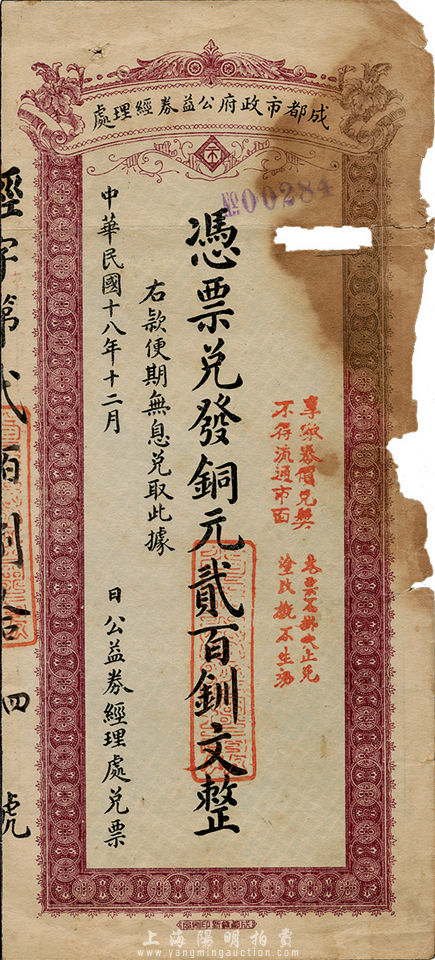 成都市政府公益券經理處
№00284
憑票兑發銅元貳百釧文整
右款便期無息兑取此據
中華民國十八年十二月 日公益券經理處兑票
專繳券價兑獎
不得流通市面
塗改概不生効
經字第貳百捌拾四號
上海陽明拍賣
www.yangmingauction.com